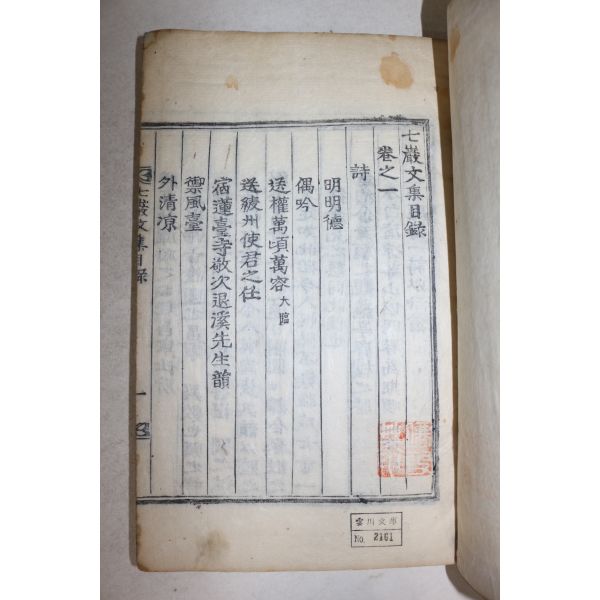 七巖文集目録
卷之一
詩
明明德
偶吟
送權萬頃萬容大臨
送綾州使君之任
宿蓮臺寺敬次退溪先生韻
禦風臺
外清凉
七巖文集目録
一
雲川文庫
No. 2161